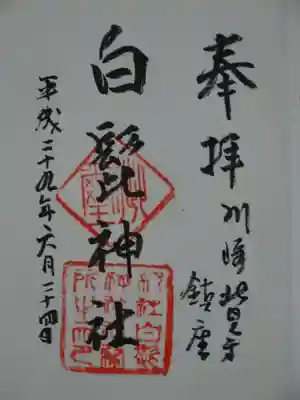 奉拝
川崎北見方
鎮座
白髭神社
平成二十九年六月二十四日